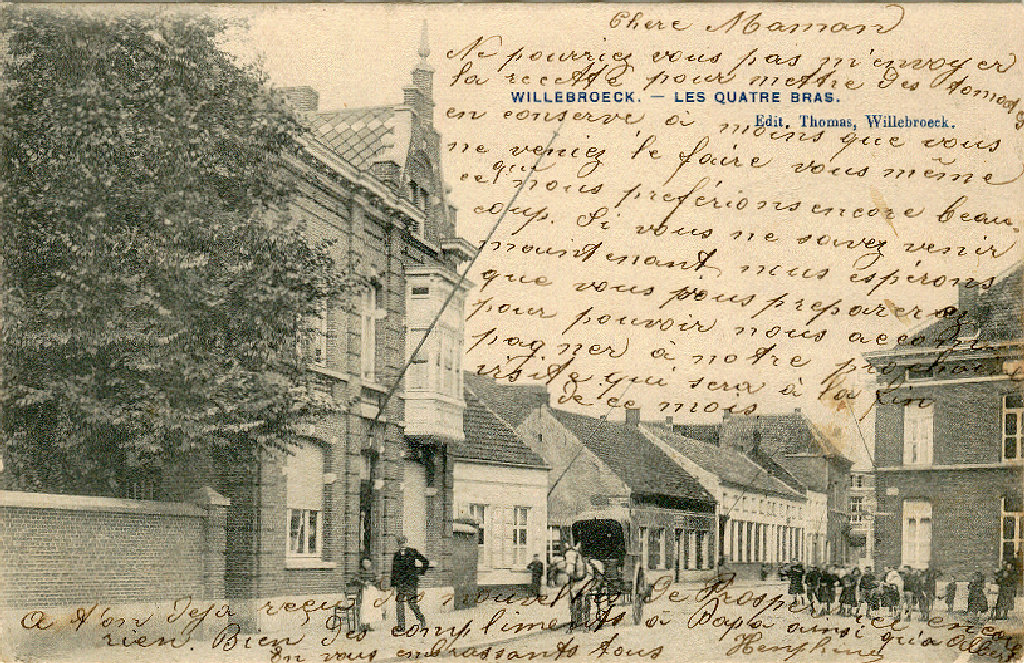 Chere Maman
Ne pourriez vous pas m'envoyer
la recette pour mettre des tomates
WILLEBROECK. — LES QUATRE BRAS.
en conserve à moins que vous
Edit. Thomas, Willebroeck.
ne veniez le faire vous même
ce que nous preférions encore beau-
coup. Si vous ne savez venir
maintenant nous espérons
que vous vous preparerez
pour pouvoir nous accom
pagner à notre prochaine
visite qui sera à la fin
de ce mois
A t'on deja reçu des nouvelles de Prosper ici enco
rien. Bien des compliments à Papa ainsi qu'a Albert
En vous embrassants tous